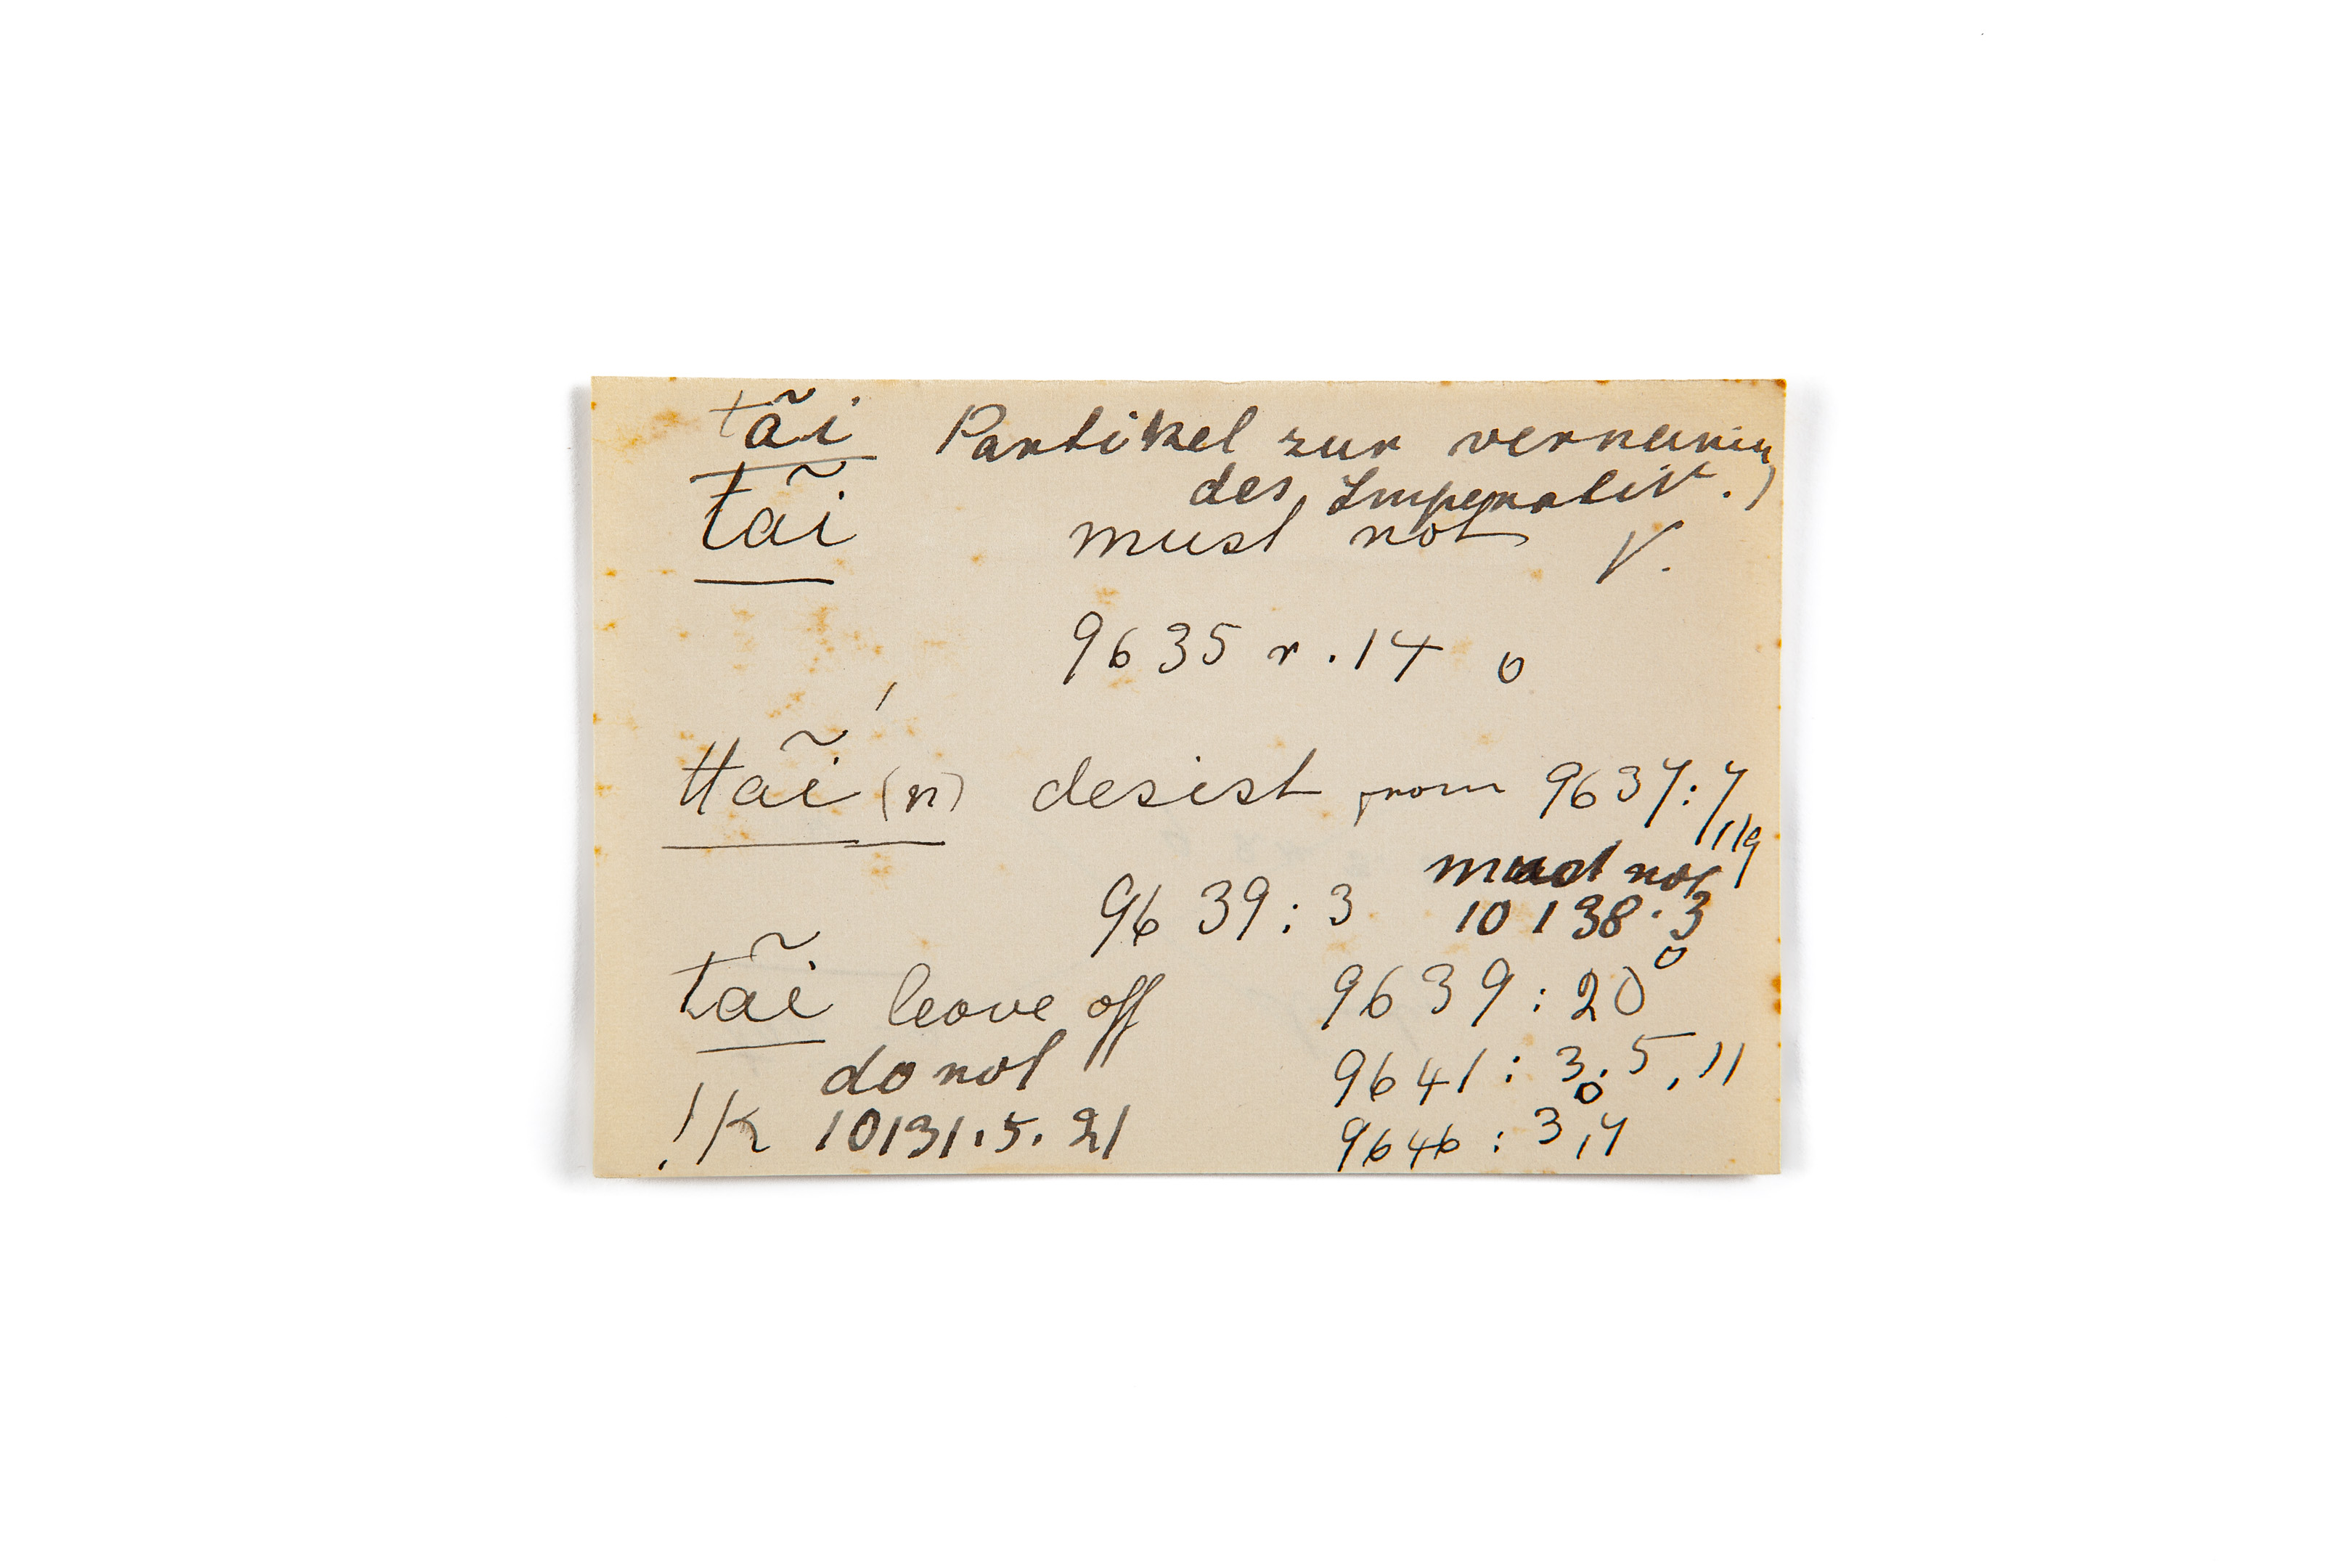 tãi Partikel zur verneinung
des Imperativ.)
tãi must not V.
9635 r. 14 o
ttãi (n) desist from 9637:7,
119
must not
9639:3 10138.3
tãi leave off 9639:20
do not 9641:3.5,11
!k 10131.5.21 9646:3,7